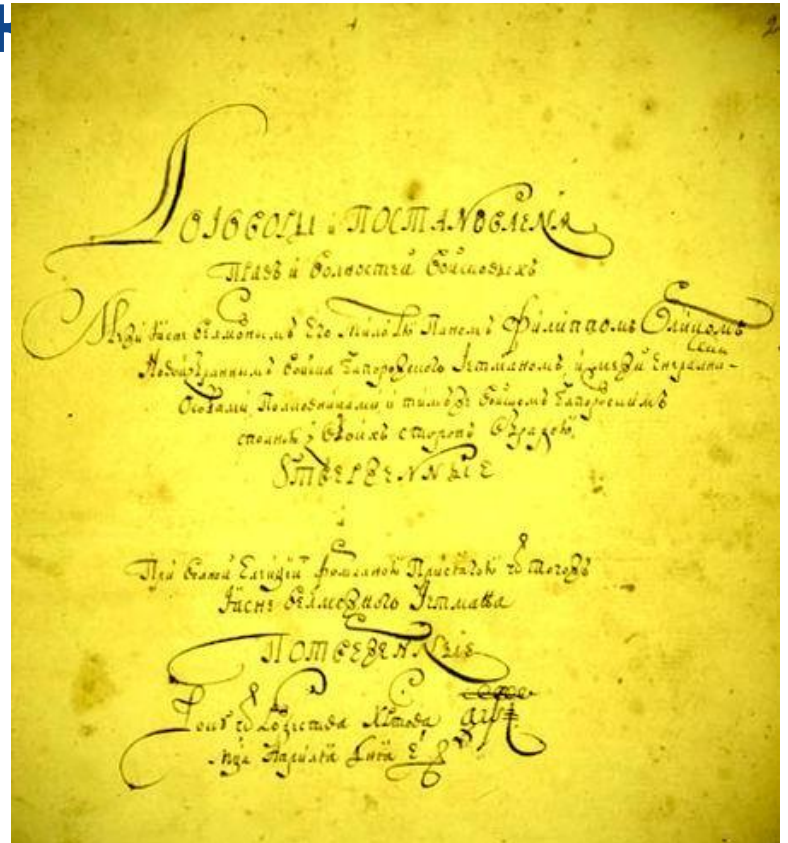 2
Договоры и Постановленїя
Правъ и волностей войсковыхъ
Межи Ясне велможнымъ Его милостю Паномъ Филиппомъ Орликомъ
Новоизбраннымъ войска Запорожского Гетманомъ, и межи Енералными
Особами, Полковниками и тимже войскомъ Запорожскимъ
сполною з обоихъ сторонъ обрадою
Утвержденные
При волной Елекцїи формалною Присягою ѿ тогожъ
Ясне велможного Гетмана
Потверженные
Року ѿ Рождества Христова
мца Априля дня е҃